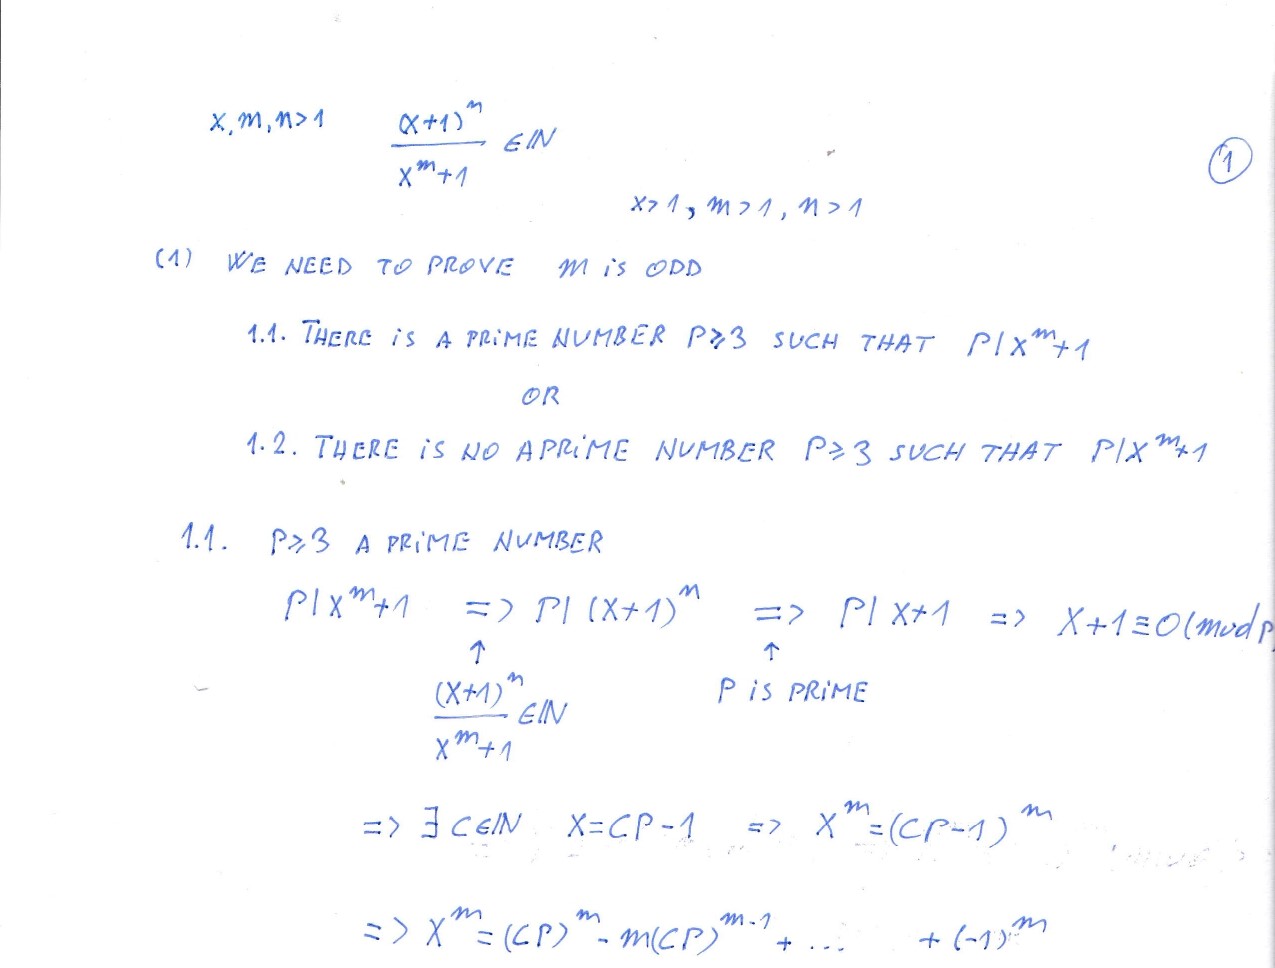 x,m,n>1   (x+1)^n / x^m+1 ∈ IN
①
x>1, m>1, n>1
(1) WE NEED TO PROVE m is ODD
1.1. THERE is A PRIME NUMBER P≥3 SUCH THAT P|x^m+1
OR
1.2. THERE is NO A PRIME NUMBER P≥3 SUCH THAT P|X^m+1
1.1. P≥3 A PRIME NUMBER
P|X^m+1 => P|(X+1)^n => P|X+1 => X+1≡0(mod p
↑ ↑
(X+1)^n / X^m+1 ∈IN   P is PRIME
=> ∃ C∈IN X=CP-1 => X^m=(CP-1)^m
=> X^m=(CP)^m-m(CP)^m-1+... +(-1)^m